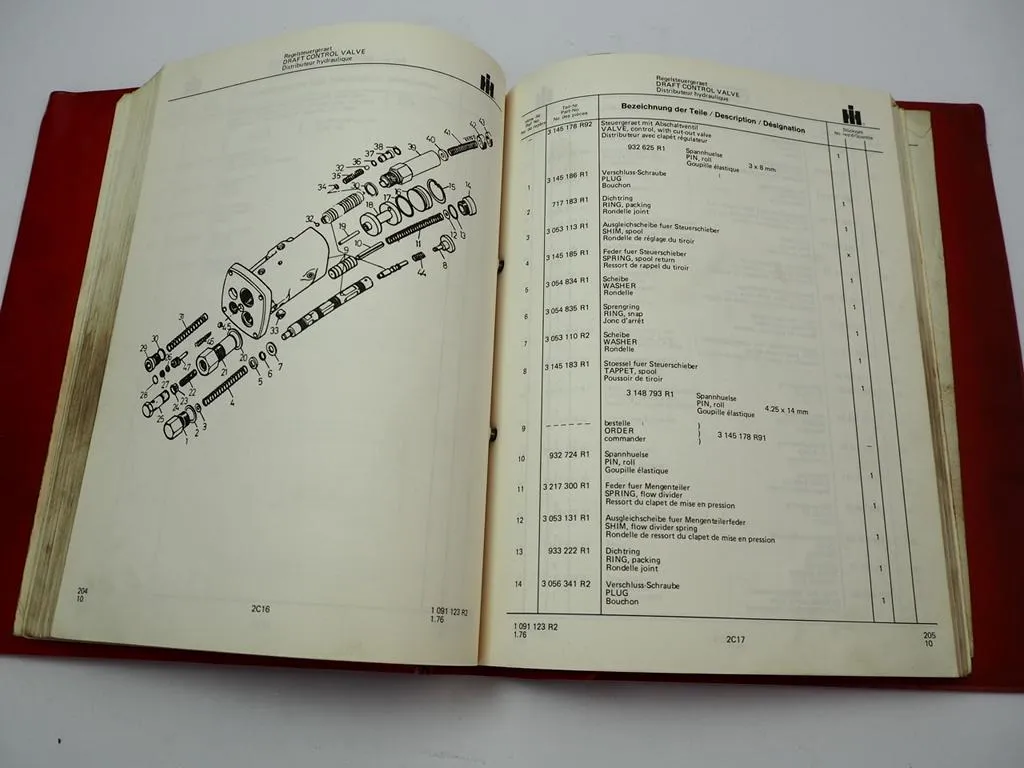 Regelsteuergeraet
DRAFT CONTROL VALVE
Distributeur hydraulique
IH
43
42
41
40
39
38
37
36
32
35
34
30
32
19
18
17
16
15
14
13
12
11
10
9
8
44
33
31
30
29
45
46
47
27
28
26
25
24
23
22
21
20
7
6
5
4
3
2
1
204
10
2C16
1 091 123 R2
1.76
Regelsteuergeraet
DRAFT CONTROL VALVE
Distributeur hydraulique
IH
Teil-Nr
Part-No.
No. des pièces
Bezeichnung der Teile / Description / Désignation
3 145 178 R92
Steuergeraet mit Abschaltventil
VALVE, control, with cut-out valve
Distributeur avec clapet régulateur
1
932 625 R1
Spannhuelse
PIN, roll 3 x 8 mm
Goupille élastique
1 3 145 186 R1
Verschluss-Schraube
PLUG
Bouchon
1
2 717 183 R1
Dichtring
RING, packing
Rondelle joint
1
3 3 053 113 R1
Ausgleichscheibe fuer Steuerschieber
SHIM, spool
Rondelle de réglage du tiroir
x
4 3 145 185 R1
Feder fuer Steuerschieber
SPRING, spool return
Ressort de rappel du tiroir
1
5 3 054 834 R1
Scheibe
WASHER
Rondelle
1
6 3 054 835 R1
Sprengring
RING, snap
Jonc d'arrêt
1
7 3 053 110 R2
Scheibe
WASHER
Rondelle
1
8 3 145 183 R1
Stoessel fuer Steuerschieber
TAPPET, spool
Poussoir de tiroir
1
3 148 793 R1
Spannhuelse
PIN, roll 4.25 x 14 mm
Goupille élastique
9 – – – – – –
bestelle )
ORDER ) 3 145 178 R91
commander )
–
10 932 724 R1
Spannhuelse
PIN, roll
Goupille élastique
1
11 3 217 300 R1
Feder fuer Mengenteiler
SPRING, flow divider
Ressort du clapet de mise en pression
1
12 3 053 131 R1
Ausgleichscheibe fuer Mengenteilerfeder
SHIM, flow divider spring
Rondelle de ressort du clapet de mise en pression
1
13 933 222 R1
Dichtring
RING, packing
Rondelle joint
1
14 3 056 341 R2
Verschluss-Schraube
PLUG
Bouchon
1
1 091 123 R2
1.76
2C17
205
10